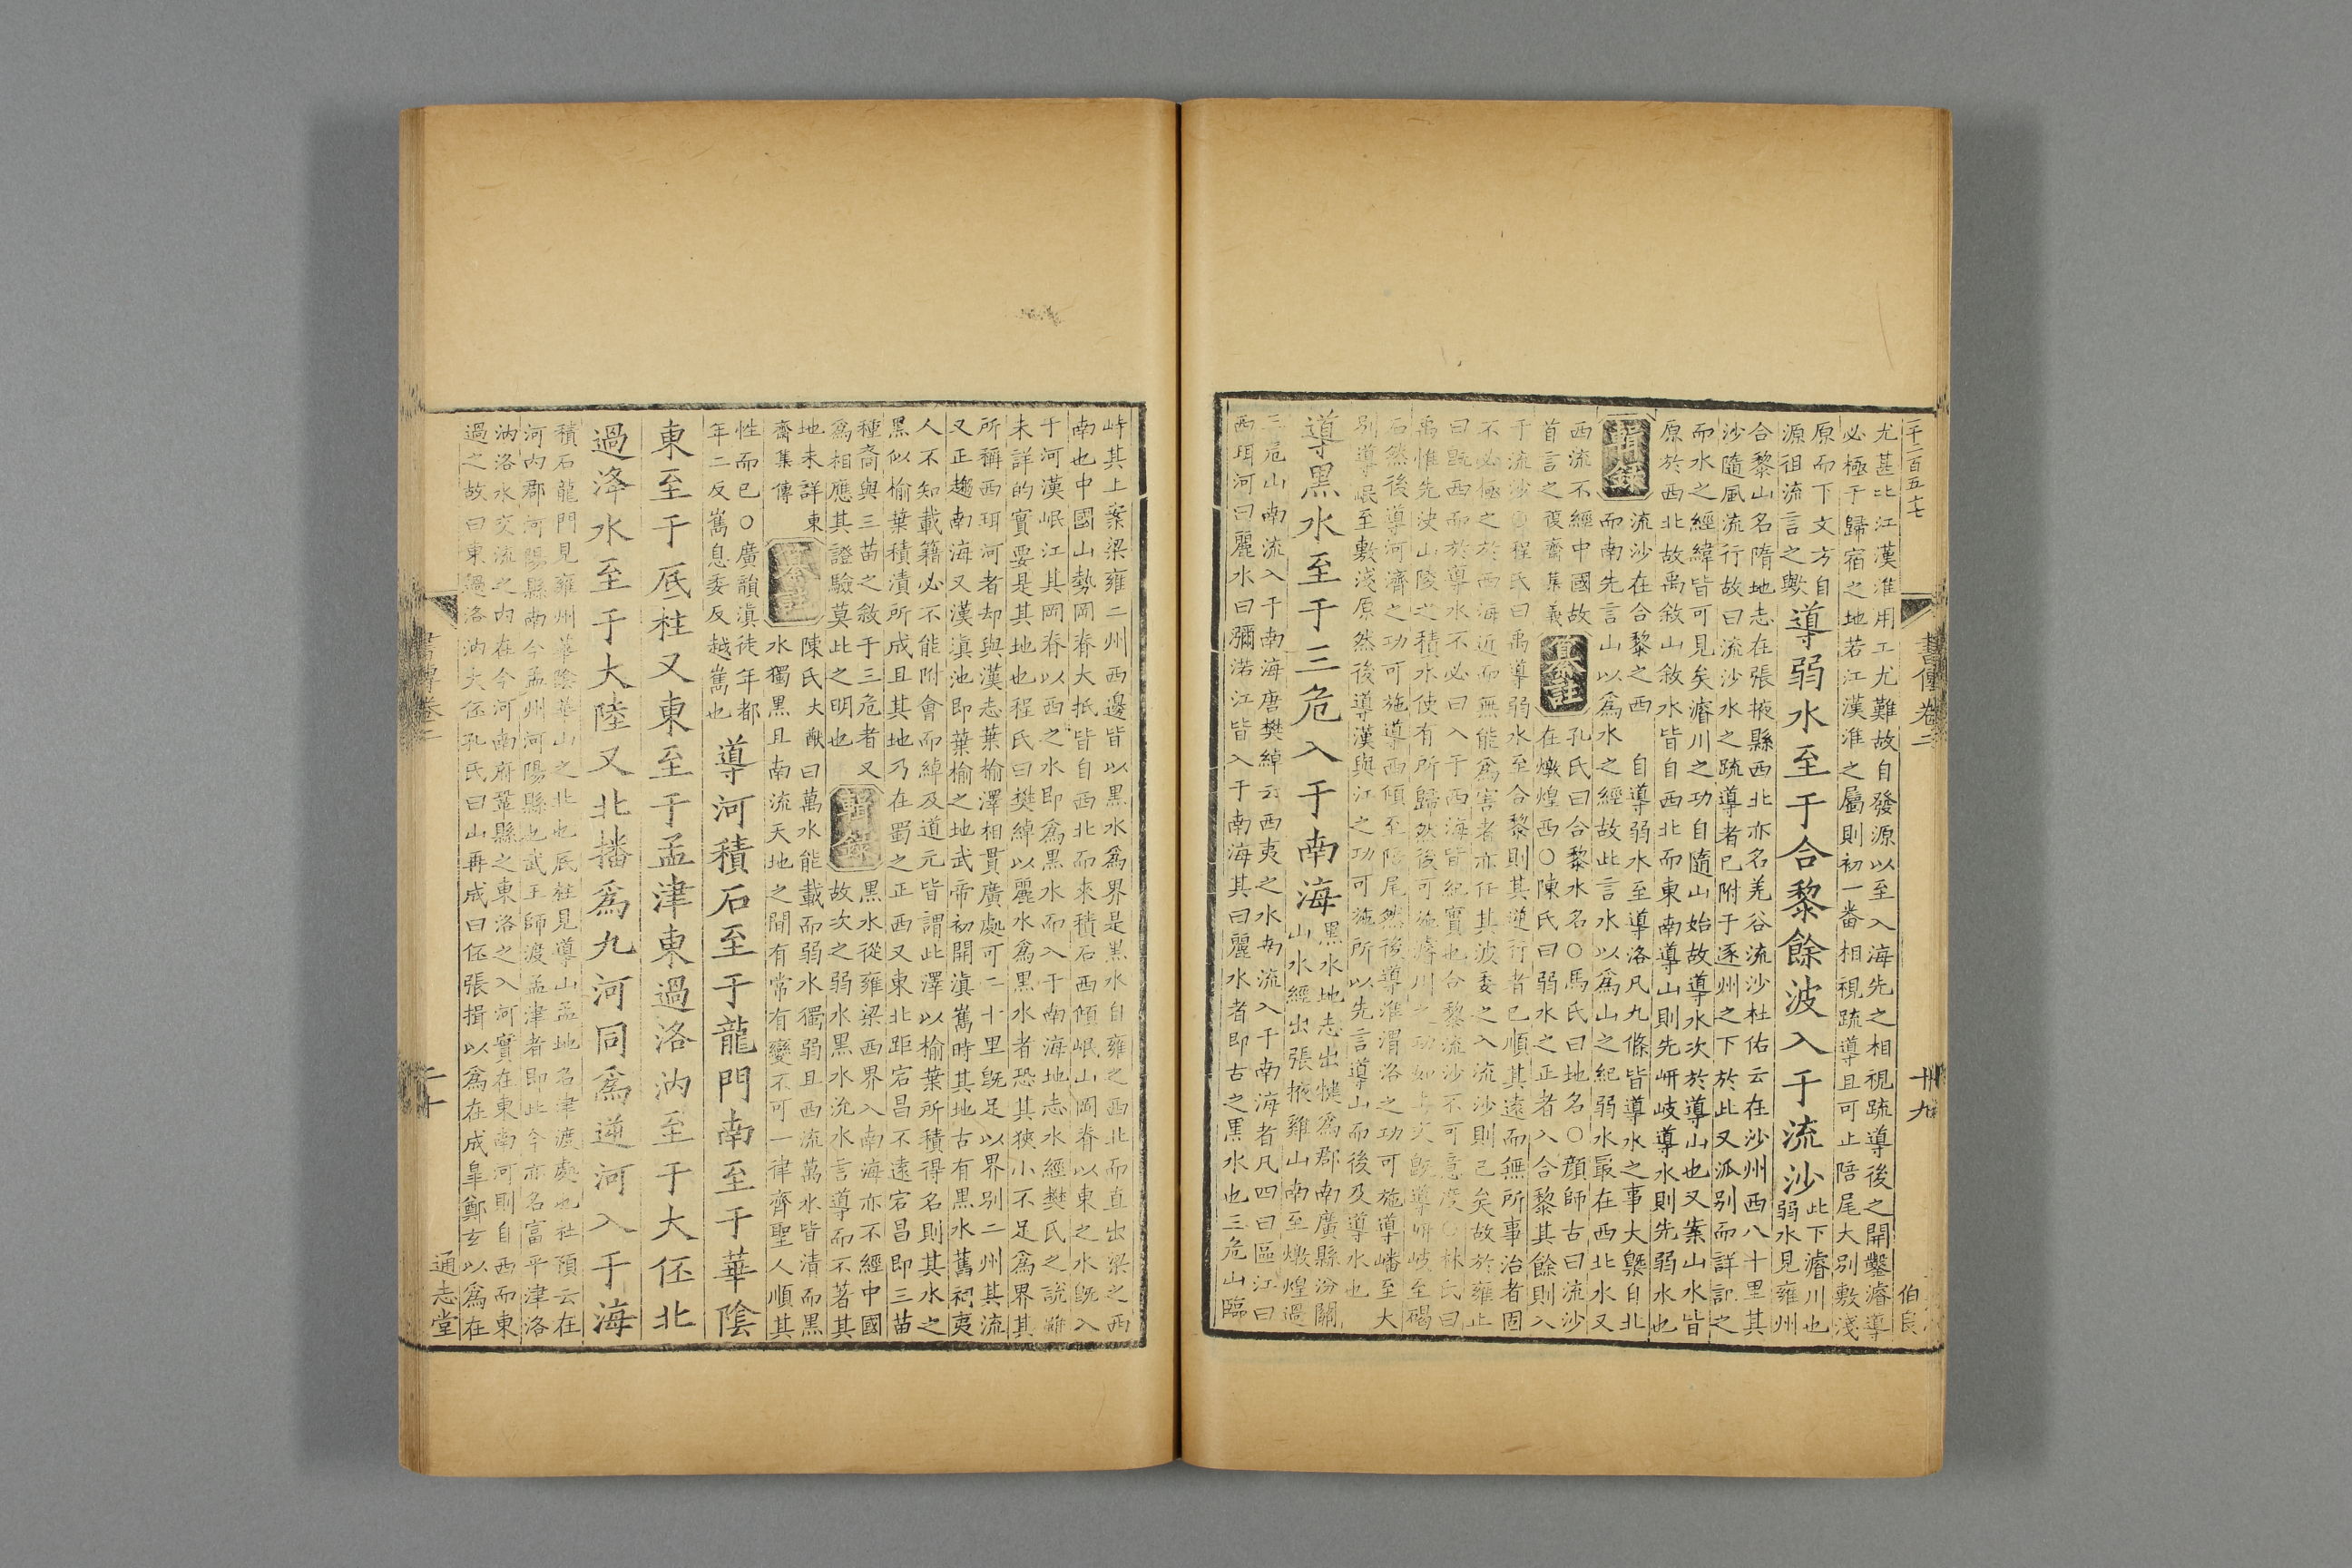 千二百五七
書傳卷二
卅九
伯良
尤甚北江漢淮用工尤難故自發源以至入海先之相視疏導後之開鑿濬導
必極于歸宿之地若江漢淮之屬則初一畨相視疏導且可止陪尾大别敷淺
原而下文方自
源徂流言之歟
導弱水至于合黎餘波入于流沙
此下濬川也
弱水見雍州
合黎山名隋地志在張掖縣西北亦名羌谷流沙杜佑云在沙州西八十里其
沙隨風流行故曰流沙水之疏導者已附于逐州之下於此又派别而詳記之
而水之經緯皆可見矣濬川之功自隨山始故導水次於導山也又案山水皆
原於西北故禹敘山敘水皆自西北而東南導山則先岍岐導水則先弱水也
輯錄
流沙在合黎之西 自導弱水至導洛凡九條皆導水之事大槩自北
而南先言山以爲水之經故此言水以爲山之紀弱水最在西北水又
西流不經中國故
首言之復齋集義
纂註
孔氏曰合黎水名○馬氏曰地名○顔師古曰流沙
在燉煌西○陳氏曰弱水之正者入合黎其餘則入
于流沙○程氏曰禹導弱水至合黎則其逆行者已順其遠而無所事治者固
不必極之於西海近而無能爲害者亦任其波委之入流沙則已矣故於雍止
曰旣西而於導水不必曰入于西海皆紀實也合黎流沙不可意度○林氏曰
禹惟先決山陵之積水使有所歸然後可施濬川之功如上文旣導岍岐至碣
石然後導河濟之功可施導西傾至陪尾然後導淮渭洛之功可施導嶓至大
别導岷至敷淺原然後導漢與江之功可施所以先言導山而後及導水也
導黑水至于三危入于南海
黑水地志出犍爲郡南廣縣汾關
山水經出張掖雞山南至燉煌過
三危山南流入于南海唐樊綽云西夷之水南流入于南海者凡四曰區江曰
西珥河曰麗水曰瀰渃江皆入于南海其曰麗水者即古之黑水也三危山臨
峙其上案梁雍二州西邊皆以黑水爲界是黑水自雍之西北而直出梁之西
南也中國山勢岡脊大抵皆自西北而來積石西傾岷山岡脊以東之水旣入
于河漢岷江其岡脊以西之水即爲黑水而入于南海地志水經樊氏之說雖
未詳的實要是其地也程氏曰樊綽以麗水爲黑水者恐其狹小不足爲界其
所稱西珥河者却與漢志葉榆澤相貫廣處可二十里旣足以界别二州其流
又正趨南海又漢滇池即葉榆之地武帝初開滇嶲時其地古有黑水舊祠夷
人不知載籍必不能附會而綽及道元皆謂此澤以榆葉所積得名則其水之
黑似榆葉積漬所成且其地乃在蜀之正西又東北距宕昌不遠宕昌即三苗
種裔與三苗之敘于三危者又
爲相應其證驗莫此之明也
輯錄
黑水從雍梁西界入南海亦不經中國
故次之弱水黑水沇水言導而不著其
地未詳 東
齋集傳
纂註
陳氏大猷曰萬水能載而弱水獨弱且西流萬水皆清而黑
水獨黑且南流天地之間有常有變不可一律齊聖人順其
性而已○廣韻滇徒年都
年二反嶲息委反越嶲也
導河積石至于龍門南至于華陰
東至于厎柱又東至于孟津東過洛汭至于大伾北
過洚水至于大陸又北播爲九河同爲逆河入于海
積石龍門見雍州華陰華山之北也厎柱見導山孟地名津渡處也杜預云在
河内郡河陽縣南今孟州河陽縣也武王師渡孟津者即此今亦名富平津洛
汭洛水交流之内在今河南府鞏縣之東洛之入河實在東南河則自西而東
過之故曰東過洛汭大伾孔氏曰山再成曰伾張揖以爲在成皐鄭玄以爲在
書傳卷二
通志堂